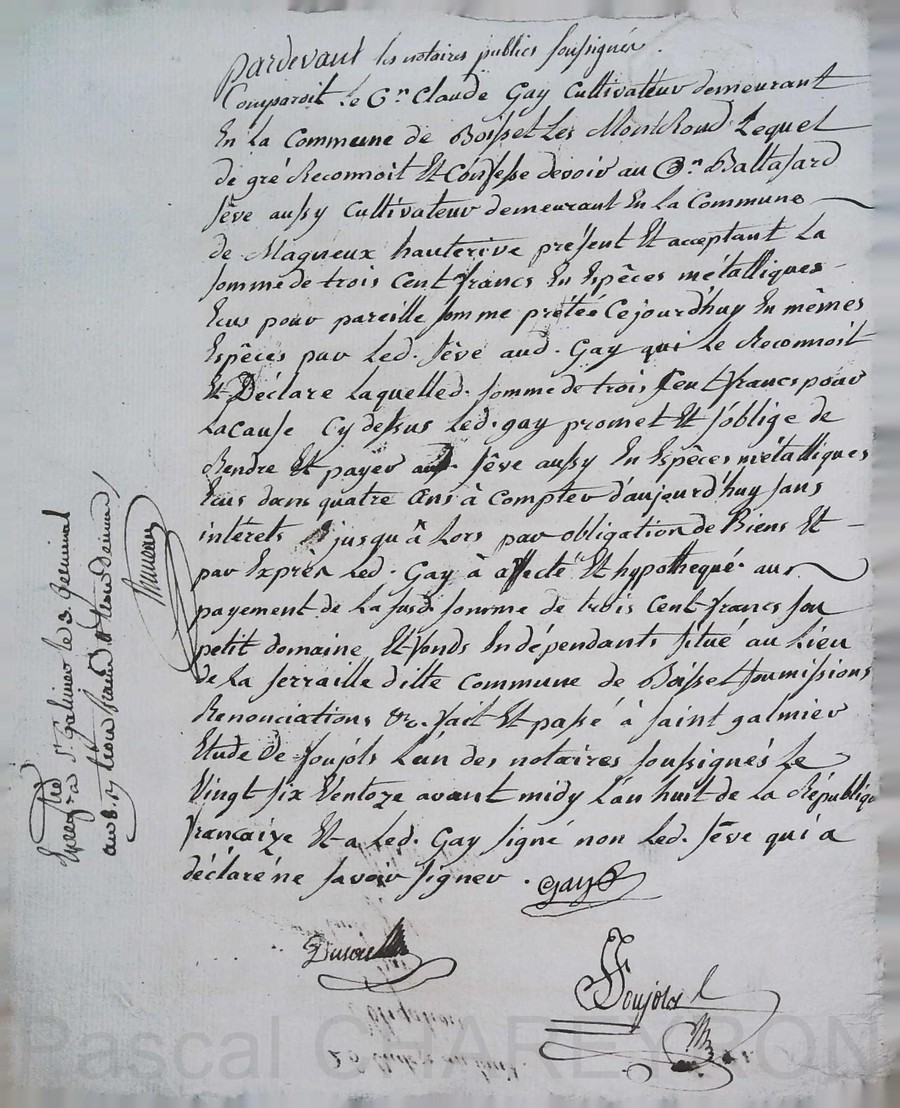 pardevant les notaires publics soussignés.
Comparoit le Cn. Claude Gay Cultivateur demeurant
En la Commune de Boisset Les MontRond Lequel
de gré Reconnoit Et Confesse devoir au Cn. Baltasard
sêve aussy Cultivateur demeurant En La Commune
de Magneux hauterive présent Et acceptant La
somme de trois Cent francs En Espêces métalliques
Ecus pour pareille somme prétée Cejourd'huy En mêmes
Espêces par Led. sêve aud. Gay qui Le Reconnoit
Et Déclare Laquelled. somme de trois Cent francs pour
La Cause Cy dessus Led. gay promet Et s'oblige de
Rendre Et payer aud. sêve aussy En Espêces métalliques
Ecus dans quatre ans à Compter d'aujourd'huy sans
intérets jusqu'à Lors par obligation de Biens Et
par Exprès Led. Gay à affecté Et hypothequé au
payement de La susd. somme de trois Cent francs son
petit domaine Et fonds Indépendants situé au Lieu
de La serraille ditte Commune de Boisset soumissions
Renonciations &c. fait Et passé à saint galmier
Etude de soujols L'un des notaires soussignés Le
Vingt six Ventoze avant midy L'an huit de La République
francaize Et a Led. Gay signé non Led. sêve qui a
déclaré ne savoir signer.
Gay
Soujols
St. Galmier le 3. Germinal
an 8.
Pascal CHAREYRON